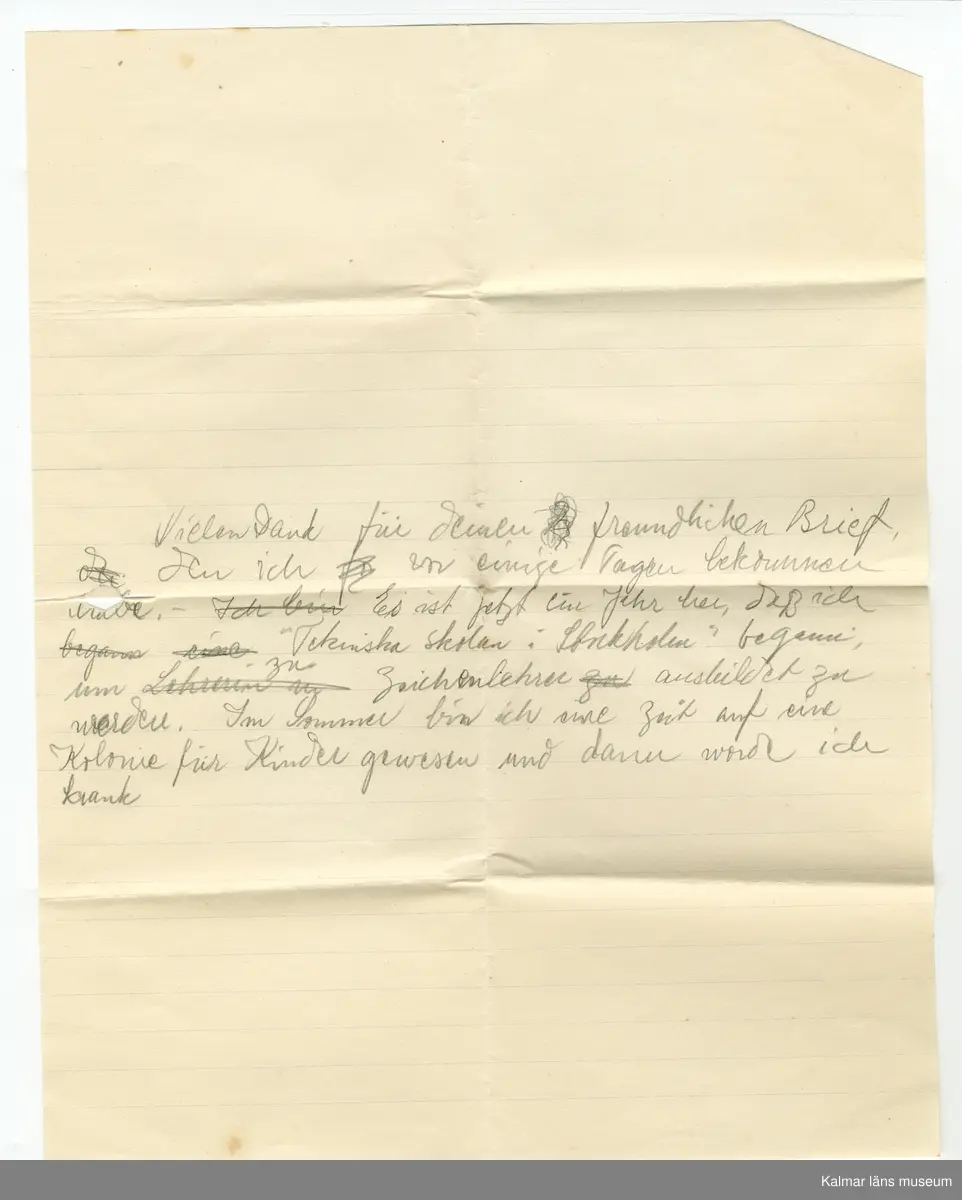 Vielen Dank für deinen freundlichen Brief,
den ich vor einige Tagen bekommen
habe. – Ich bin Es ist jetzt ein Jahr her, daß ich
begann eine "Tekniska skolan i Stockholm" begann,
zu
um Lehrerin zu Zeichenlehrer zu ausbildet zu
werden. Im Sommer bin ich eine Zeit auf eine
Kolonie für Kinder gewesen und dann wurde ich
krank
Kalmar läns museum